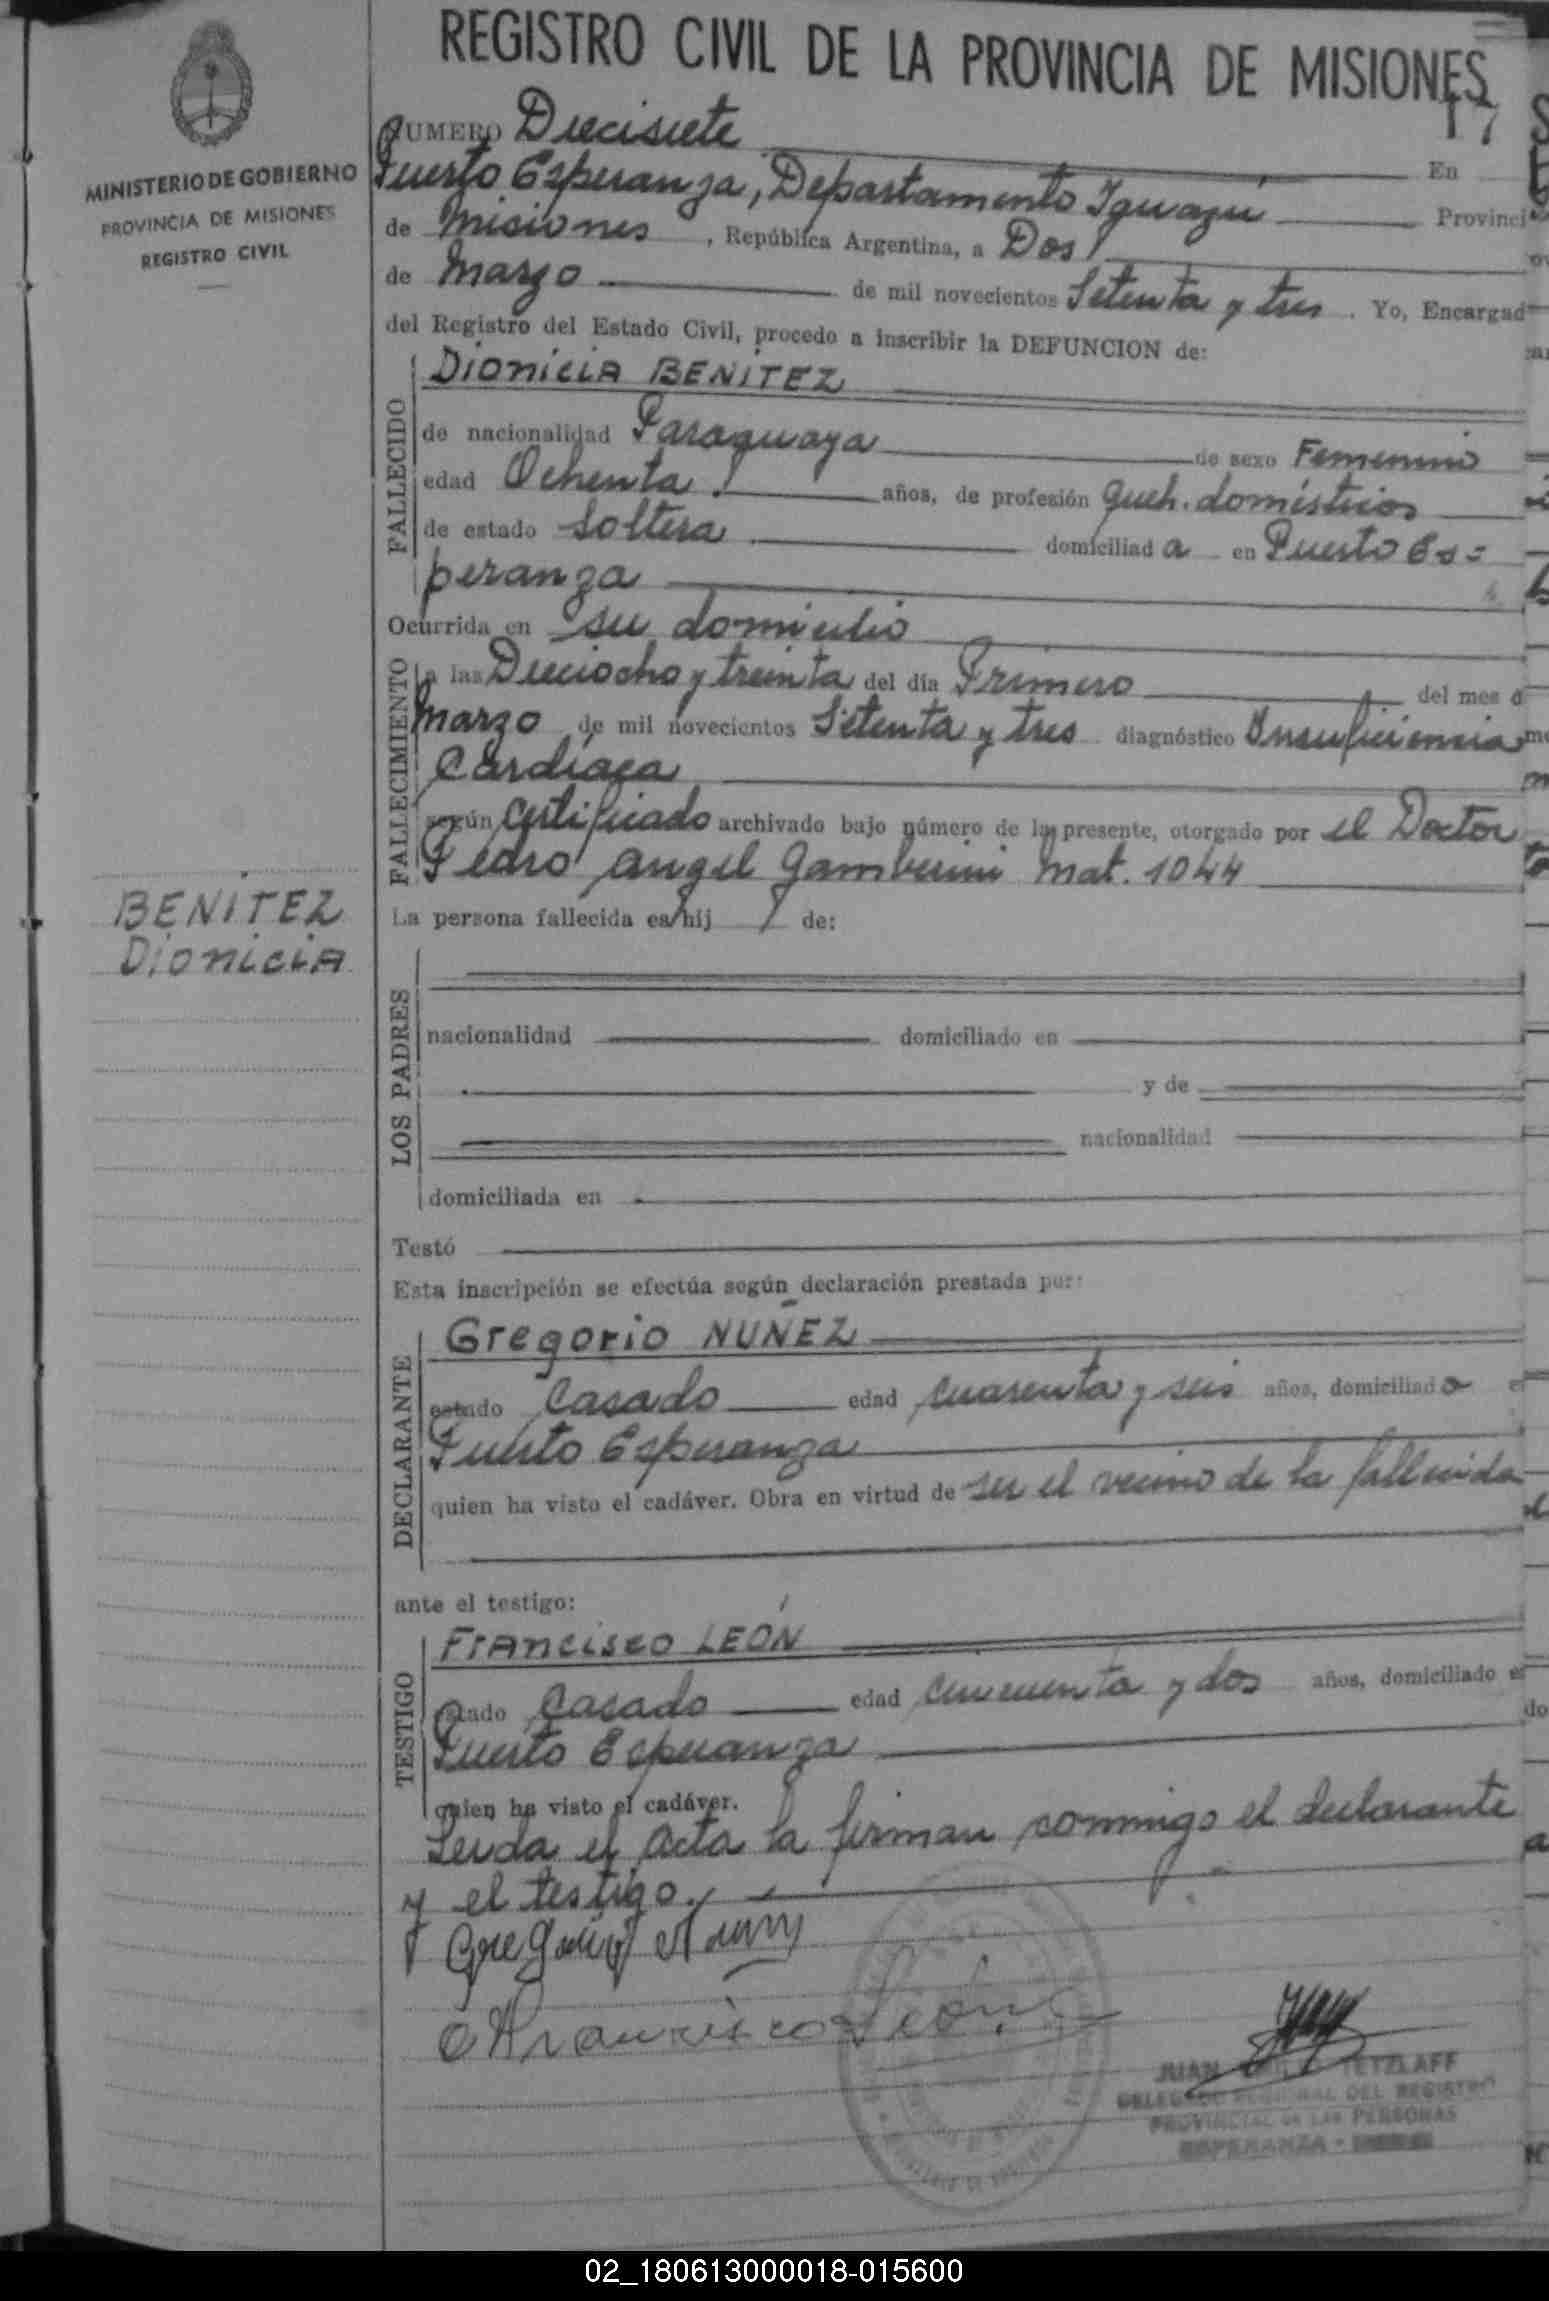 REGISTRO CIVIL DE LA PROVINCIA DE MISIONES
17
MINISTERIO DE GOBIERNO
PROVINCIA DE MISIONES
REGISTRO CIVIL
NUMERO Diecisiete En
Puerto Esperanza, Departamento Iguazú Provinci
de Misiones, República Argentina, a Dos
de Marzo de mil novecientos Setenta y tres. Yo, Encargad
del Registro del Estado Civil, procedo a inscribir la DEFUNCION de:
FALLECIDO
Dionicia BENITEZ
de nacionalidad Paraguaya de sexo Femenino
edad Ochenta años, de profesión Queh. domésticos
de estado Soltera domiciliad a en Puerto Es=
peranza
Ocurrida en su domicilio
FALLECIMIENTO
a las Dieciocho y treinta del día Primero del mes d
Marzo de mil novecientos Setenta y tres diagnóstico Insuficiencia
Cardíaca
según certificado archivado bajo número de la presente, otorgado por el Doctor
Pedro Angel Gamberini Mat. 1044
BENITEZ
Dionicia
La persona fallecida es hij de:
LOS PADRES
nacionalidad domiciliado en
y de
nacionalidad
domiciliada en
Testó
Esta inscripción se efectúa según declaración prestada por:
DECLARANTE
Gregorio NUÑEZ
estado Casado edad cuarenta y seis años, domiciliado e
Puerto Esperanza
quien ha visto el cadáver. Obra en virtud de ser el vecino de la fallecida
ante el testigo:
TESTIGO
Francisco LEÓN
estado Casado edad cincuenta y dos años, domiciliado e
Puerto Esperanza
quien ha visto el cadáver.
Leida el Acta la firman conmigo el declarante
y el testigo.
Gregorio Nuñez
Francisco León
JUAN TETZLAFF
DELEGADO REGIONAL DEL REGISTRO
PROVINCIAL DE LAS PERSONAS
ESPERANZA -
02_180613000018-015600